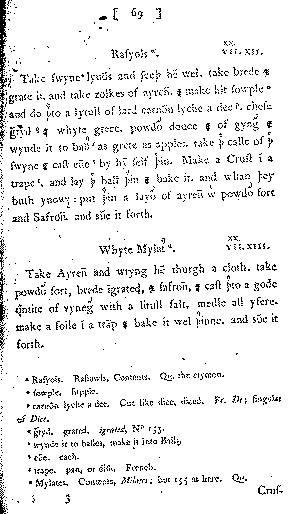 [ 69 ]
Rasyols ᵃ. XX. VII. XII.
Take swyne lyuōs and seeþ hē wel. take brede ⁊
grate it. and take zolkes of ayreñ. ⁊ make hit sowple ᵇ
and do þto a lytull of lard carnōn lyche a dee ᶜ. chese
gryd ᵈ ⁊ whyte grece. powdo douce ⁊ of gyng ⁊
wynde it to ball ᵉ as grete as apples. take þ calle of þ
swyne ⁊ cast eūe ᶠ by hī self þin. Make a Crust ī a
trape ᵍ. and lay þ ball þin ⁊ bake it. and whan þey
buth ynowȝ: put þin a layo of ayreñ w powdo fort
and Safroñ. and sūe it forth.
Whyte Mylat ʰ. XX. VII. XIII.
Take Ayreñ and wryng hē thurgh a cloth. take
powdo fort, brede igrated, ⁊ safroñ, ⁊ cast þto a gode
qūtite of vyneg with a litull salt, medle all yfere.
make a foile ī a trāp ⁊ bake it wel þinne. and sūe it
forth.
ᵃ Rasyols. Rasiowls, Contents. Qu. the etymon.
ᵇ sowple. supple.
ᶜ carnōn lyche a dee. Cut like dice, diced. Fr. De; singular
of Dice.
ᵈ gryd. grated. igrated, Nº 153.
ᵉ wynde it to balles, make it into Balls.
ᶠ eūe. each.
ᵍ trape. pan, or dish. French.
ʰ Mylates. Contents, Milates; but 155 as here. Qu.
3 Crus-